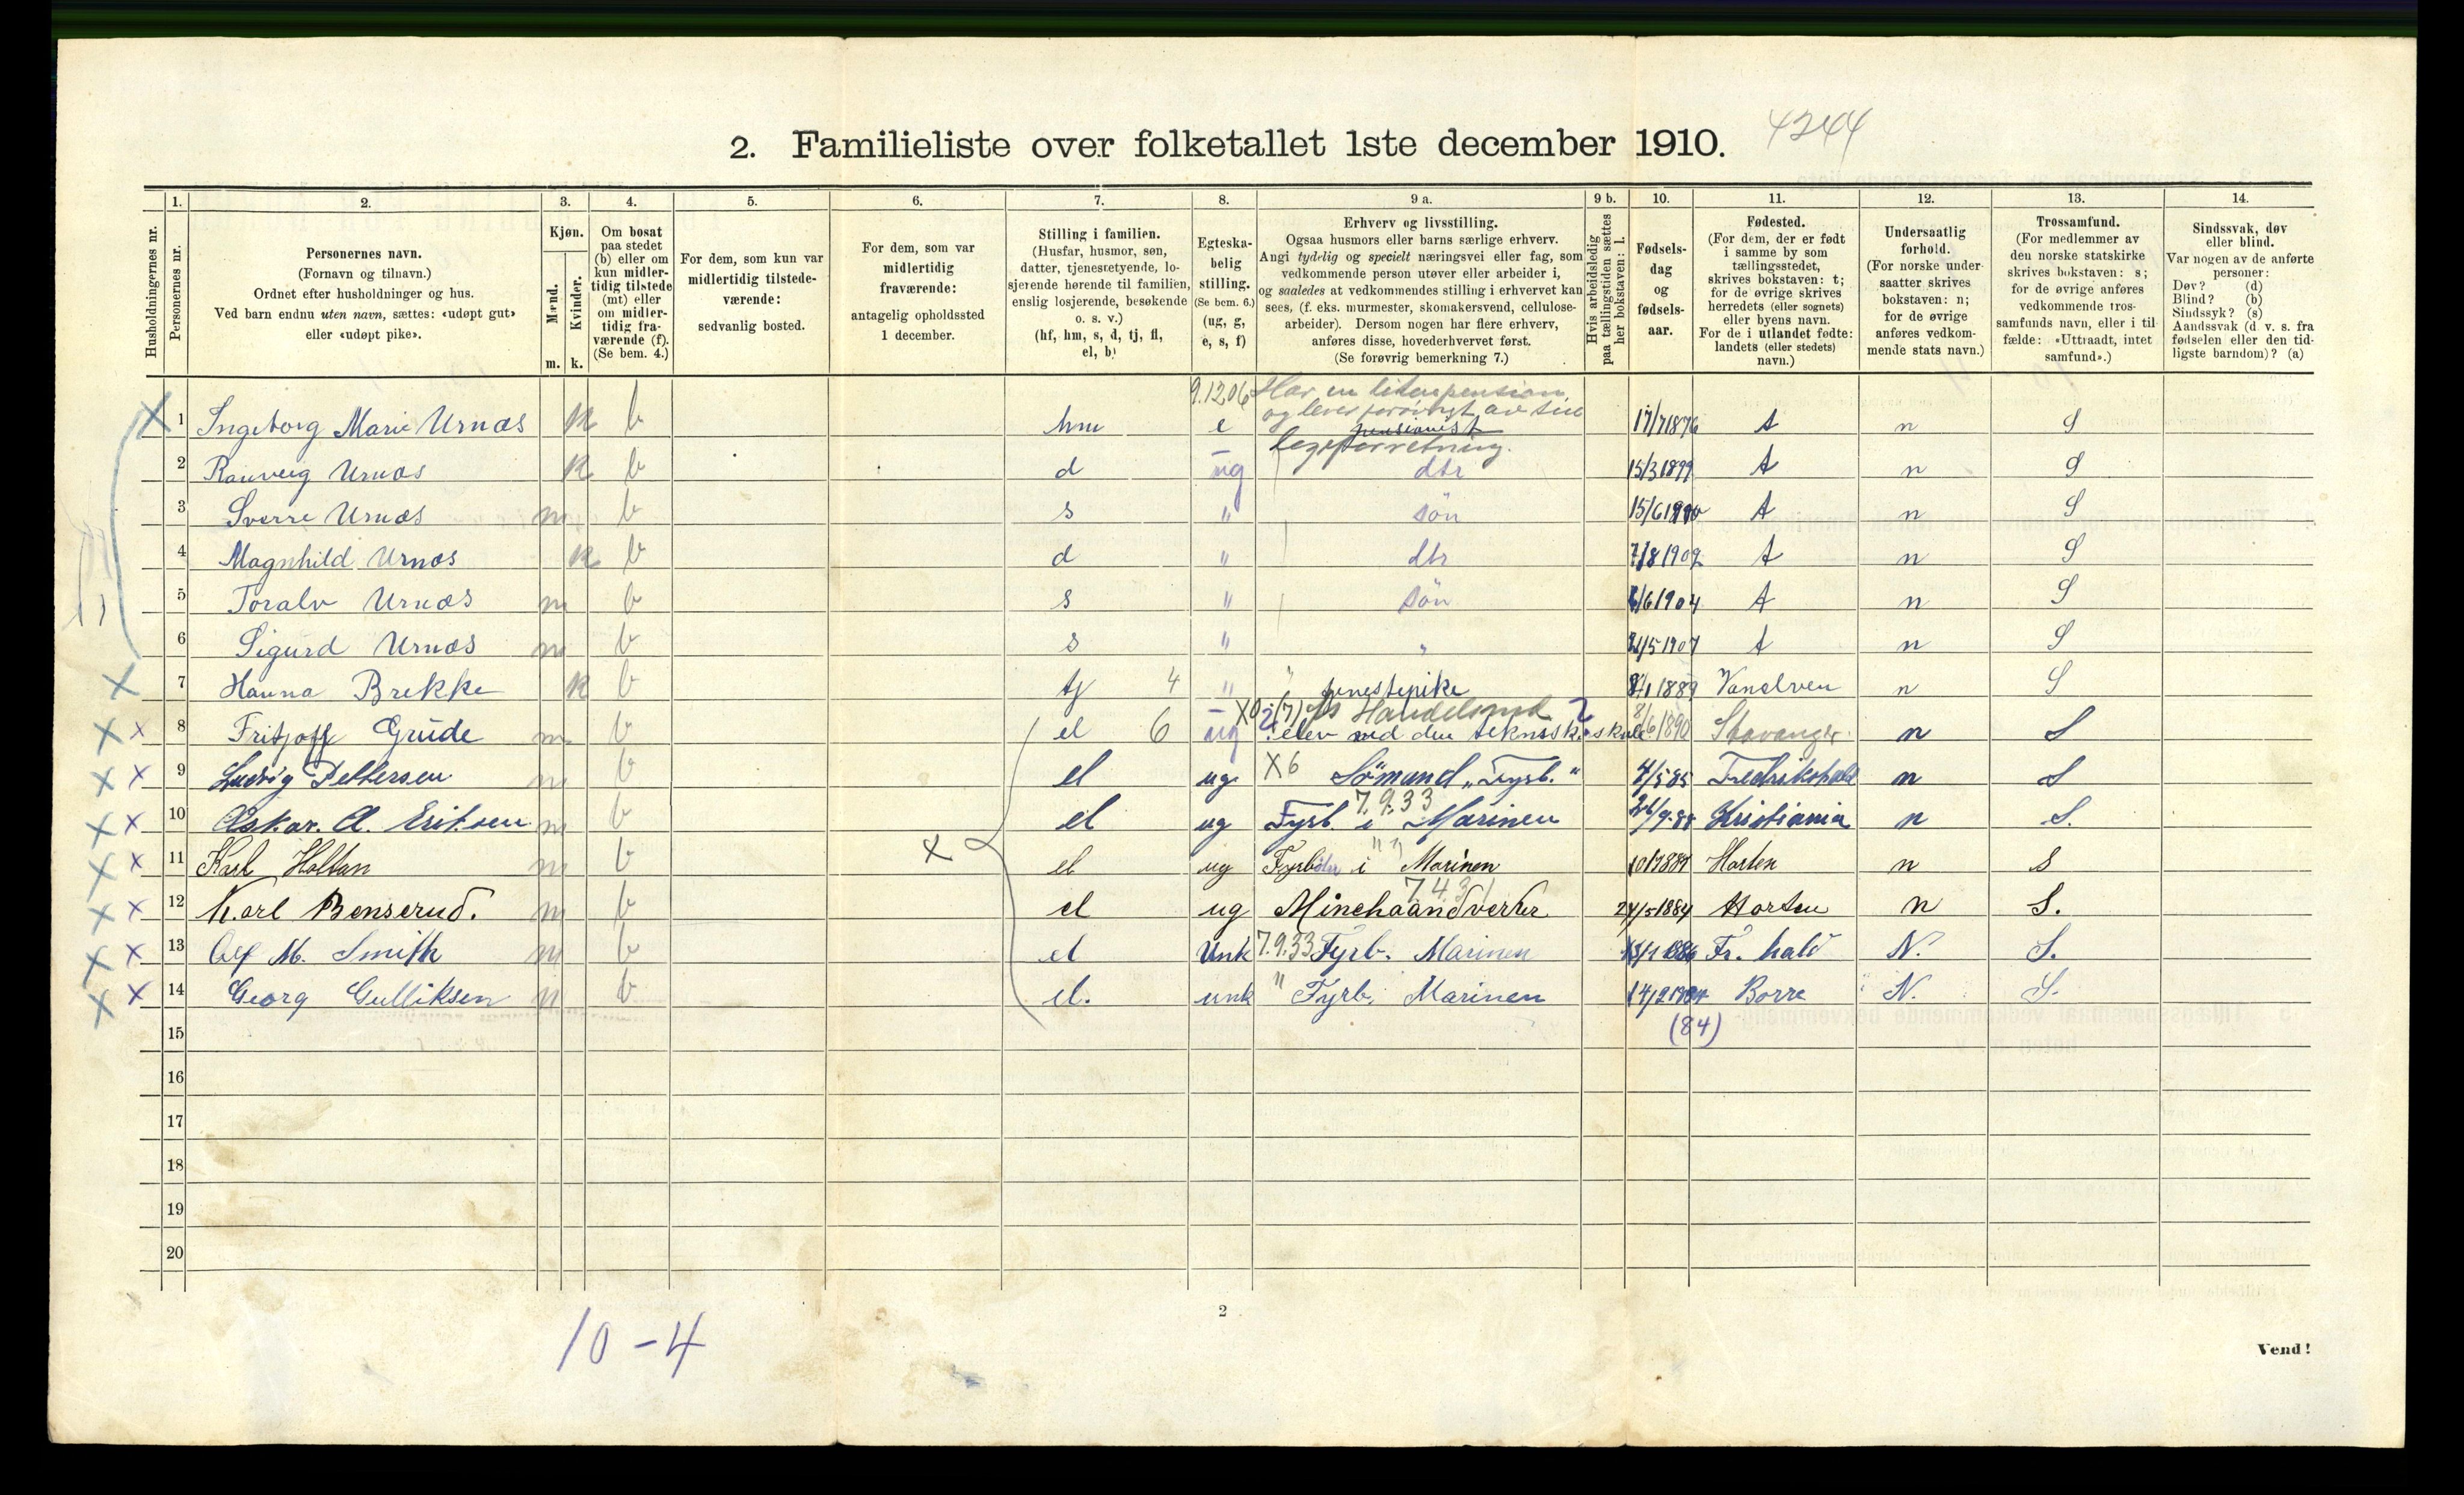 2. Familieliste over folketallet 1ste december 1910. 4244
Husholdningernes nr.
1. Personernes nr.
2. Personernes navn.
(Fornavn og tilnavn.)
Ordnet efter husholdninger og hus.
Ved barn endnu uten navn, sættes: «udøpt gut»
eller «udøpt pike».
3. Kjøn.
Mænd. m.
Kvinder. k.
4. Om bosat
paa stedet
(b) eller om
kun midler-
tidig tilstede
(mt) eller
om midler-
tidig fra-
værende (f).
(Se bem. 4.)
5. For dem, som kun var
midlertidig tilstede-
værende:
sedvanlig bosted.
6. For dem, som var
midlertidig
fraværende:
antagelig opholdssted
1 december.
7. Stilling i familien.
(Husfar, husmor, søn,
datter, tjenestetyende, lo-
sjerende hørende til familien,
enslig losjerende, besøkende
o. s. v.)
(hf, hm, s, d, tj, fl,
el, b)
8. Egteska-
belig
stilling.
(Se bem. 6.)
(ug, g,
e, s, f)
9 a. Erhverv og livsstilling.
Ogsaa husmors eller barns særlige erhverv.
Angi tydelig og specielt næringsvei eller fag, som
vedkommende person utøver eller arbeider i,
og saaledes at vedkommendes stilling i erhvervet kan
sees, (f. eks. murmester, skomakersvend, cellulose-
arbeider). Dersom nogen har flere erhverv,
anføres disse, hovederhvervet først.
(Se forøvrig bemerkning 7.)
9 b. Hvis arbeidsledig
paa tællingstiden sættes
her bokstaven: l.
10. Fødsels-
dag
og
fødsels-
aar.
11. Fødested.
(For dem, der er født
i samme by som
tællingsstedet,
skrives bokstaven: t;
for de øvrige skrives
herredets (eller sognets)
eller byens navn.
For de i utlandet fødte:
landets (eller stedets)
navn.)
12. Undersaatlig
forhold.
(For norske under
saatter skrives
bokstaven: n;
for de øvrige
anføres vedkom-
mende stats navn.)
13. Trossamfund.
(For medlemmer av
den norske statskirke
skrives bokstaven: s;
for de øvrige anføres
vedkommende tros-
samfunds navn, eller i til
fælde: «Uttraadt, intet
samfund».)
14. Sindssvak, døv
eller blind.
Var nogen av de anførte
personer:
Døv? (d)
Blind? (b)
Sindssyk? (s)
Aandssvak (d. v. s. fra
fødselen eller den tid-
ligste barndom)? (a)
9.1206 Har en liten pension
og lever forøvrigt av sin
X 1 Ingeborg Marie Urnæs k b hm e pensionist 17/7 1876 t n S
forretning.
2 Ranveig Urnæs k b d ug dtr 15/3 1899 t n S
3 Sverre Urnæs m b s " søn 15/6 1900 t n S
4 Magnhild Urnæs k b d " dtr 7/8 1902 t n S
5 Toralv Urnæs m b s " søn /6 1904 t n S
6 Sigurd Urnæs m b s " " /5 1907 t n S
X 7 Hanna Brekke k b tj 4 " tjenestepike /1 1889 Vanelven n S
X X 8 Fritjoff Grude m b el 6 ug elev ved den tekniske skole 8/6 1890 Stavanger n S
X X 9 Ludvig Pettersen m b el ug X6 Sömand „Fyrb." 4/5 85 Fredrikshald n S
7.9.33
X X 10 Oskar. A. Eriksen m b el ug Fyrb. i Marinen 24/9-88 Kristiania n S.
" "
X X 11 Karl Holtan m b el ug Fyrböter i Marinen 10/7 1887 Horten n s
7.4.31
X X 12 Karl Benserud. m b el ug Minehaandverker 24/5 1884 Horten n S.
X X 13 Alf M. Smith m b el Unk 7.9.33 Fyrb. Marinen /1 1886 Fr. hald N. S.
X X 14 Georg Gulliksen m b el. unk " Fyrb. Marinen 14/2 Borre N. S.
(84)
15
16
17
18
19
20
10-4
2
Vend!